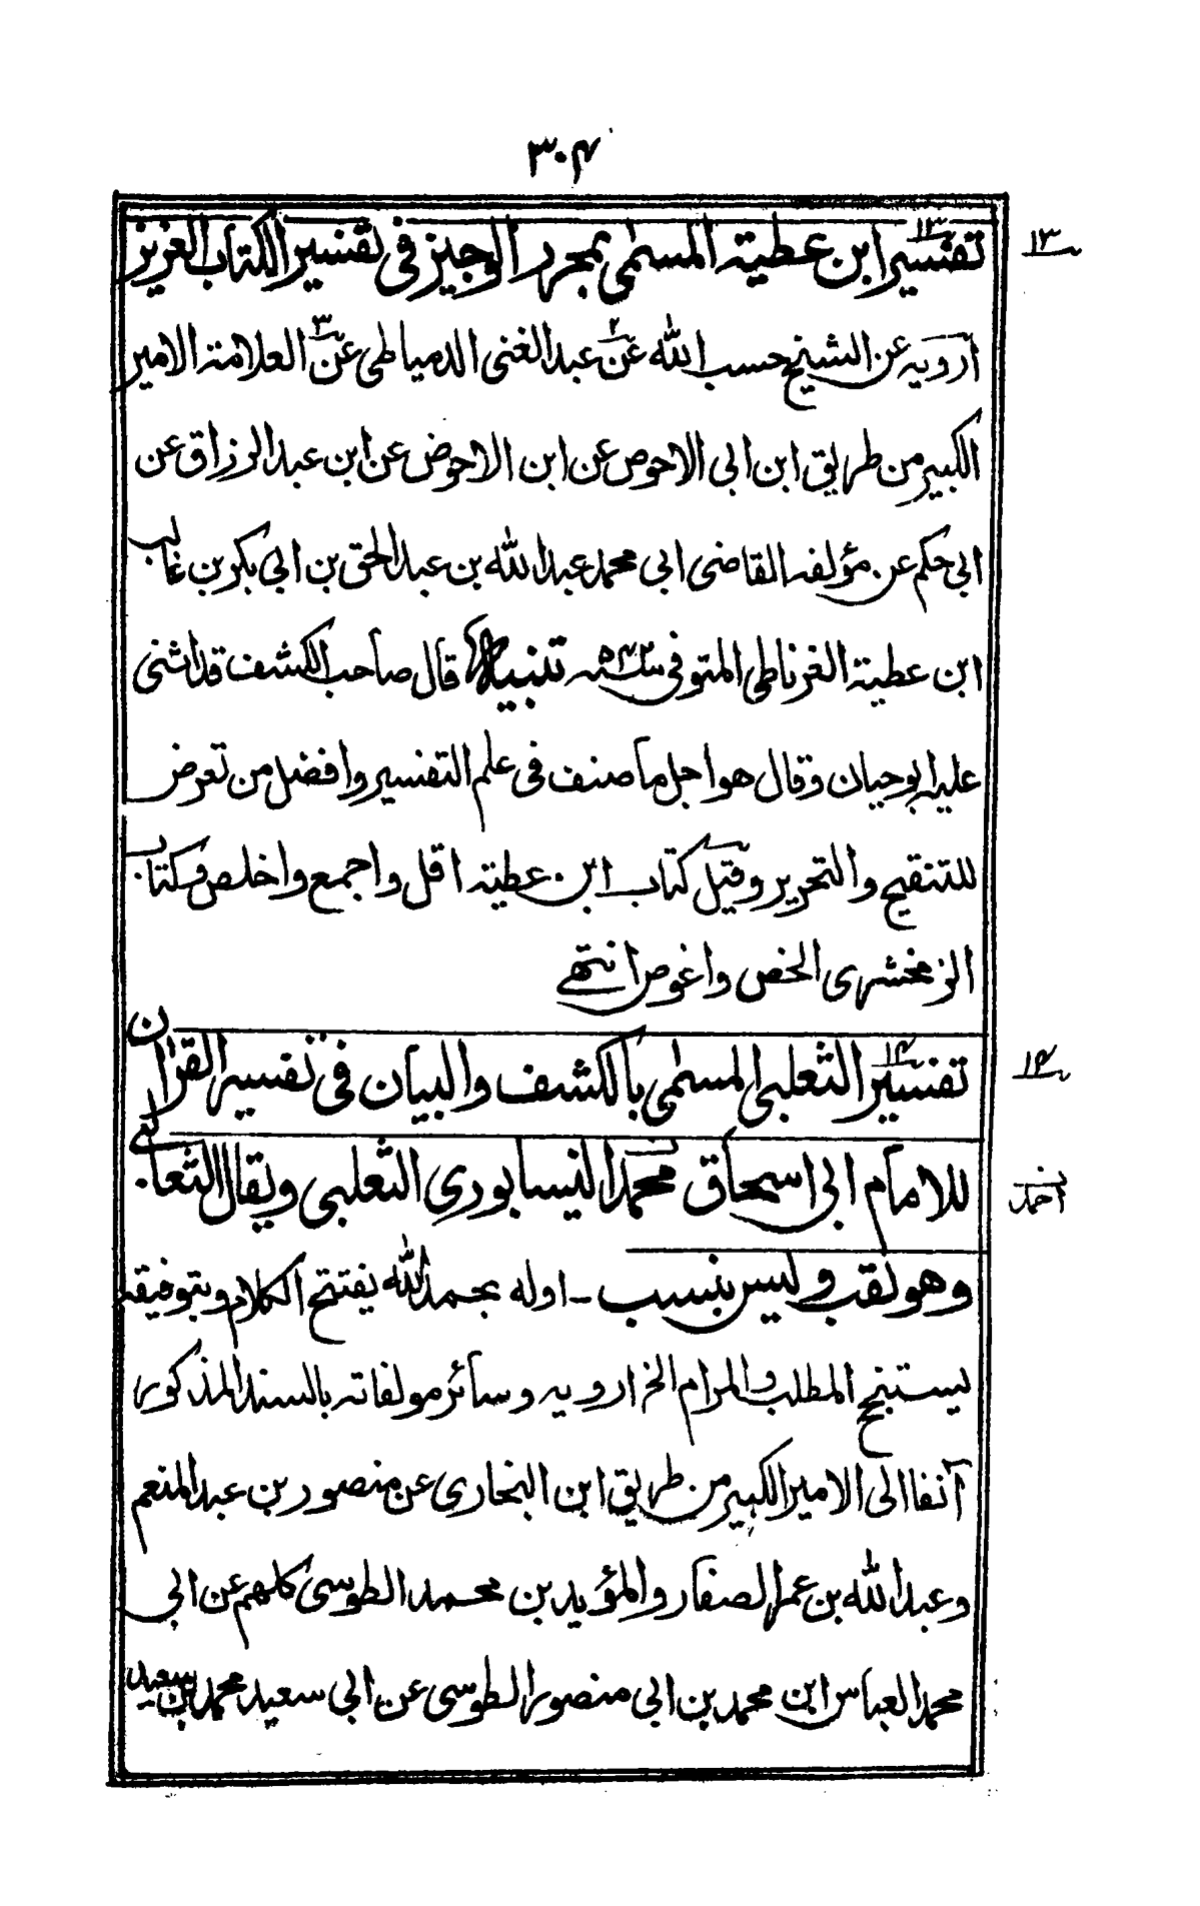 ٣٠٤
١٣
تفسير ابن عطية المسمى بمحرر الوجيز فى تفسير الكتاب العزيز
ارويه عن الشيخ حسب الله عن عبد الغنى الدمياطى عن العلامة الامير
الكبير من طريق ابن ابى الاحوص عن ابن الاحوض عن ابن عبد الرزاق عن
ابى حكم عن مؤلفه القاضى ابى محمد عبد الله بن عبد الحق بن ابى بكر بن غالب
ابن عطية الغرناطى المتوفى سنة تنبيه قال صاحب الكشف قد اثنى
عليه ابو حيان وقال هو اجل ما صنف فى علم التفسير وافضل من تعرض
للتنقيح والتحرير وقيل كتاب ابن عطية اقل واجمع واخلص وكتاب
الزمخشرى الخص واغوص انتهے
١٤
تفسير الثعلبى المسمى بالكشف والبيان فى تفسير القرآن
للامام ابى اسحاق محمد النيسابورى الثعلبى ويقال الثعالبى
احمد
وهو لقب وليس بنسب - اوله بحمد الله يفتتح الكلام وبتوفيقه
يستنجح المطلب والمرام الخ ارويه وسائر مولفاته بالسند المذكور
آنفا الى الامير الكبير من طريق ابن البخارى عن منصور بن عبد المنعم
وعبد الله بن عمر الصفار والمؤيد بن محمد الطوسى كلهم عن ابى
محمد العباس ابن محمد بن ابى منصور الطوسى عن ابى سعيد محمد بن سعيد